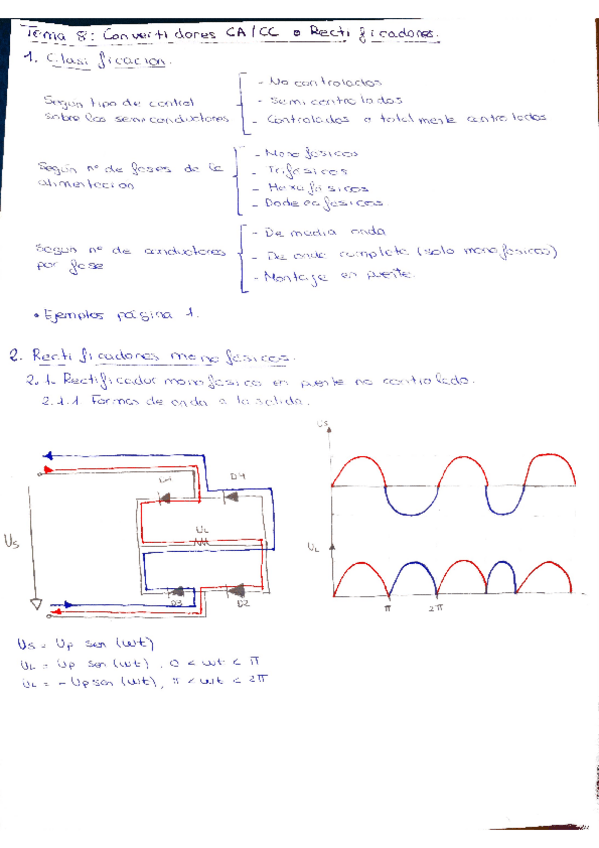 Tema 8: Convertidores CA/CC o Rectificadores.
1. Clasificacion.
Segun tipo de control
sobre los semiconductores
- No controlados
- Semicontrolados
- Controlados o totalmente controlados
Segun nº de fases de la
alimentacion
- Monofasicos
- Trifasicos
- Hexafasicos
- Dodecafasicos
Segun nº de conductores
por fase
- De media onda
- De onda completa (solo monofasicos)
- Montaje en puente.
• Ejemplos página 1.
2. Rectificadores monofasicos.
2.1. Rectificador monofasico en puente no controlado.
2.1.1 Formas de onda a la salida.
Us
D1
D4
UL
Us
UL
D3
D2
π
2π
Us = Up sen (wt)
UL = Up sen (wt), 0 < wt < π
UL = - Up sen (wt), π < wt < 2π